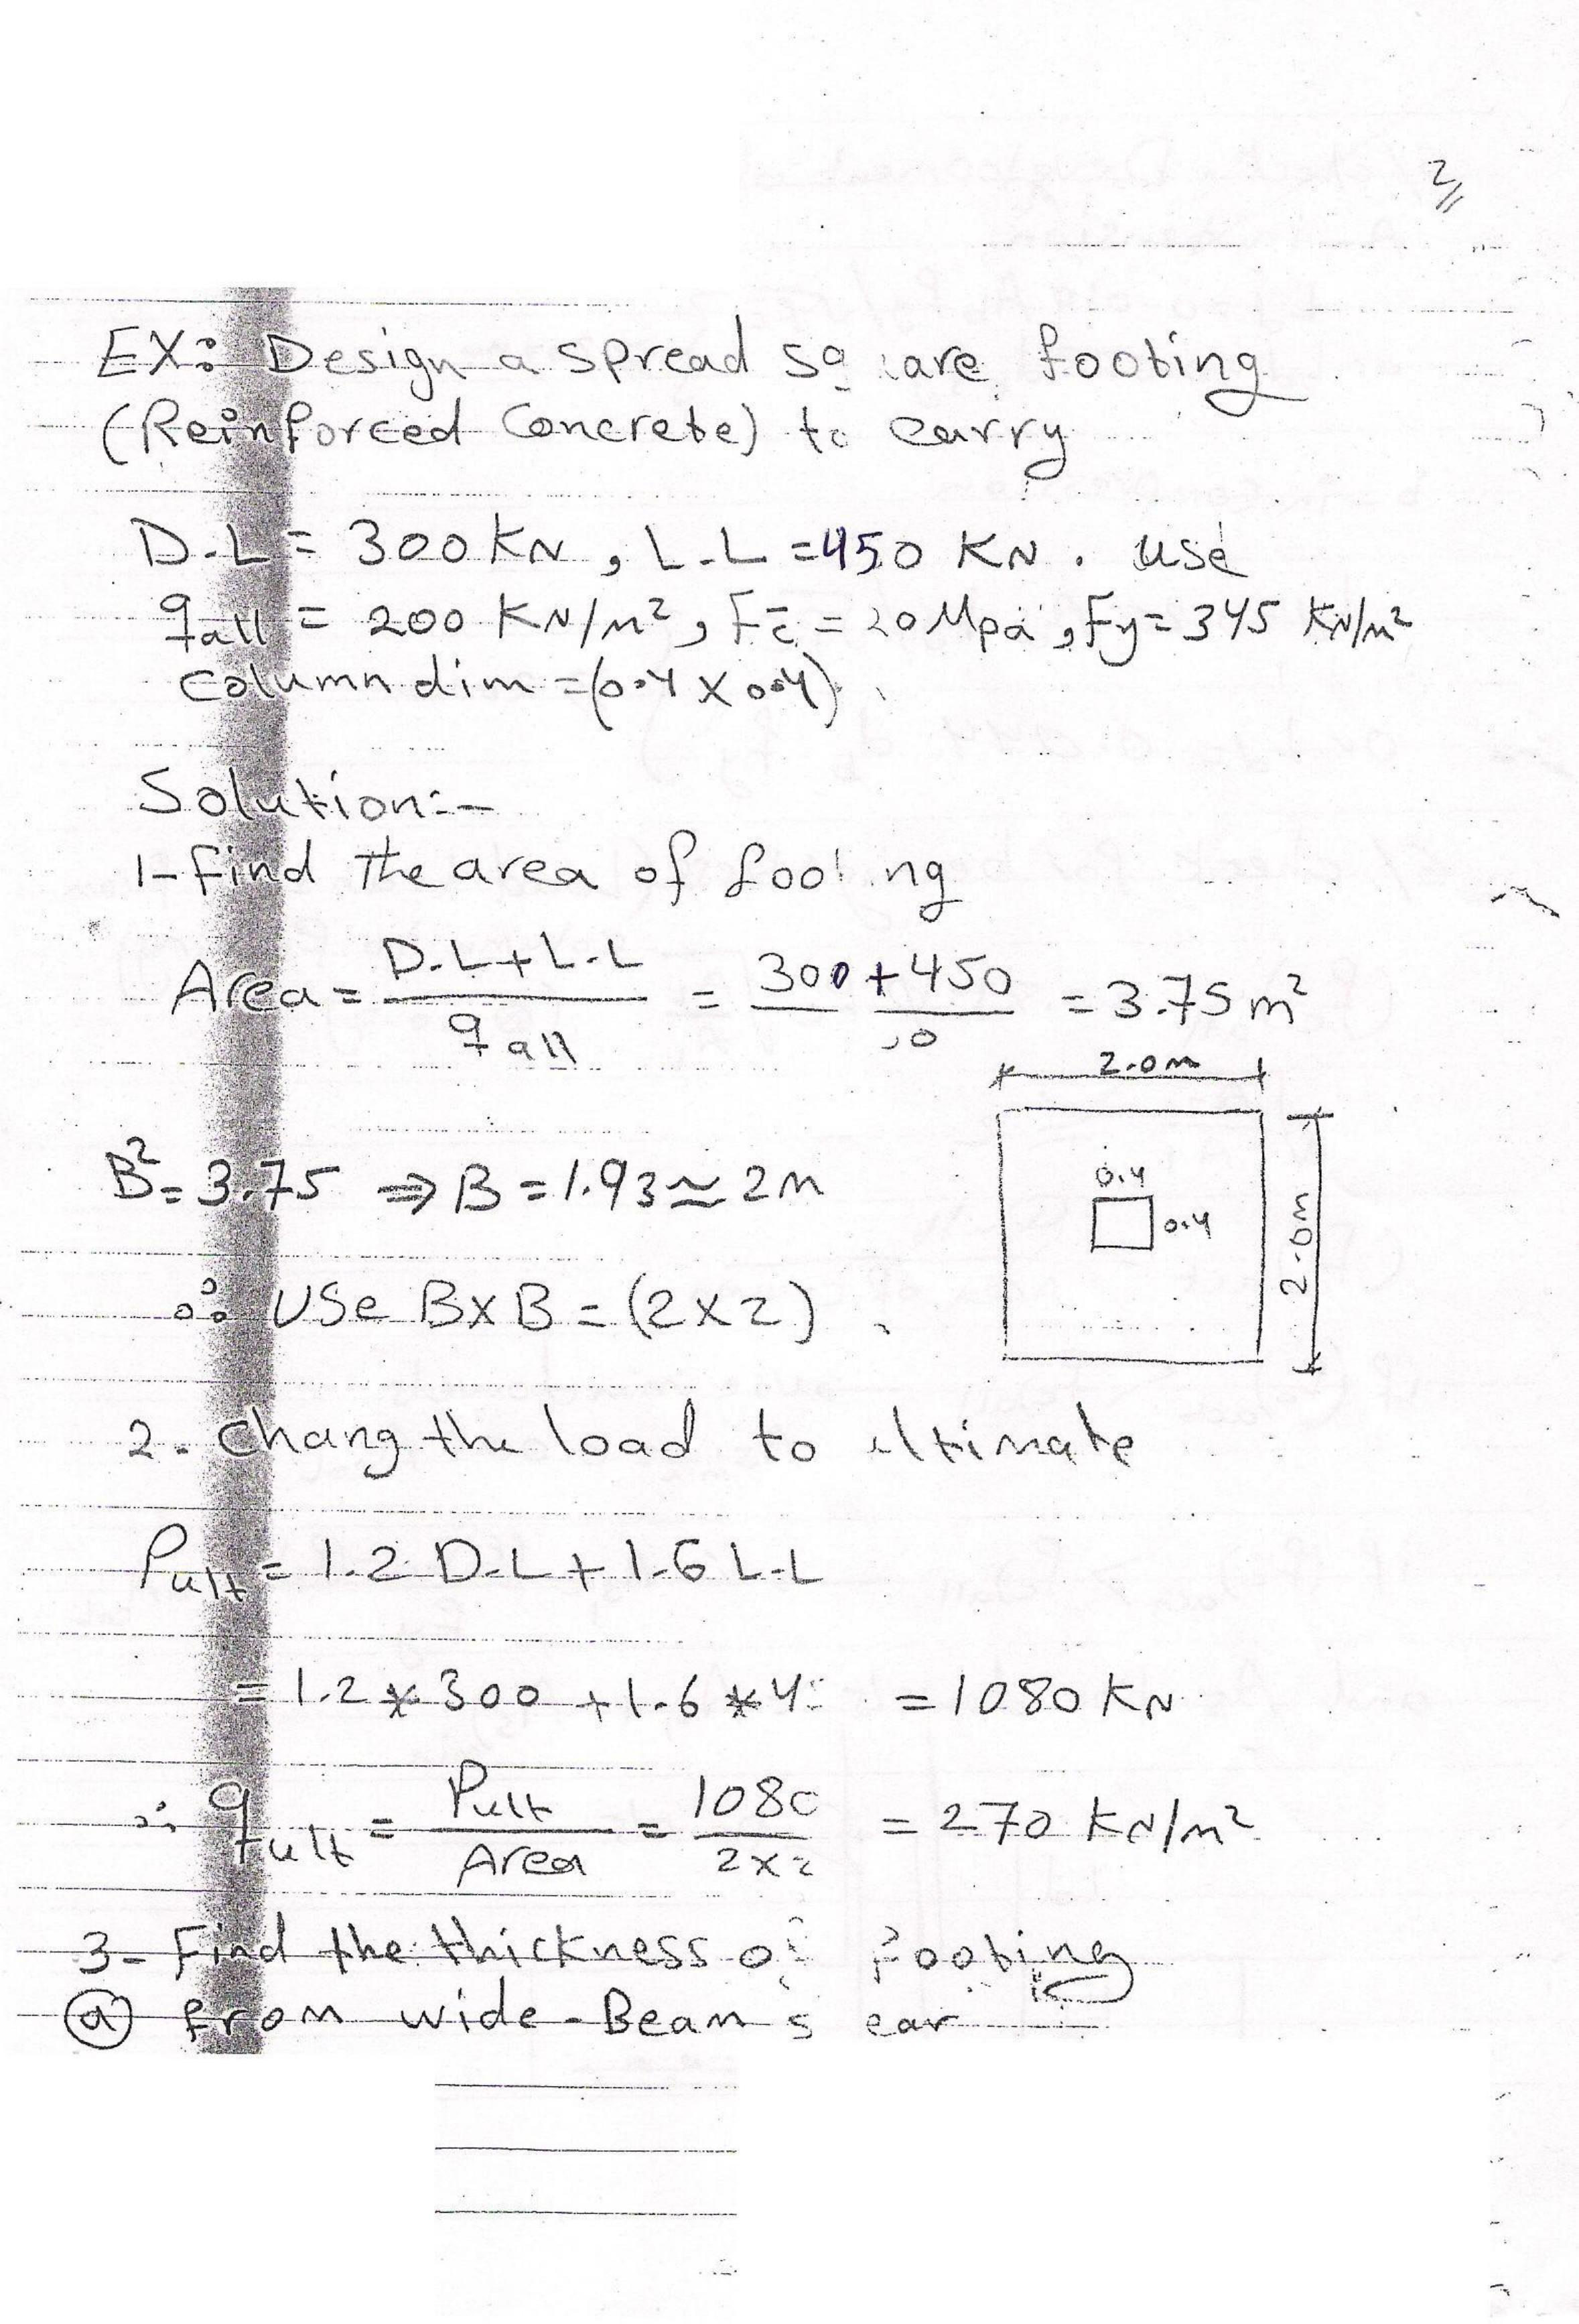 2
EX: Design a spread sq are footing
(Reinforced Concrete) to carry
D.L = 300 KN, L.L = 450 KN. Use
qall = 200 KN/m², Fc̄ = 20 Mpa, Fy = 345 KN/m²
column dim = (0.4 X 0.4).
Solution:-
1- find the area of foot ng
Area = D.L+L.L / qall = 300+450 / 0 = 3.75 m²
2.0m
B² = 3.75 ⇒ B = 1.93 ≃ 2m
0.4
0.4
2.0m
∴ Use BXB = (2X2).
2. Chang the load to ultimate
Pult = 1.2 D.L + 1.6 L.L
= 1.2 * 300 + 1.6 * 4 = 1080 KN
∴ qult = Pult / Area = 1080 / 2x2 = 270 KN/m²
3- Find the thickness of Footing
(a) from wide-Beam s ear